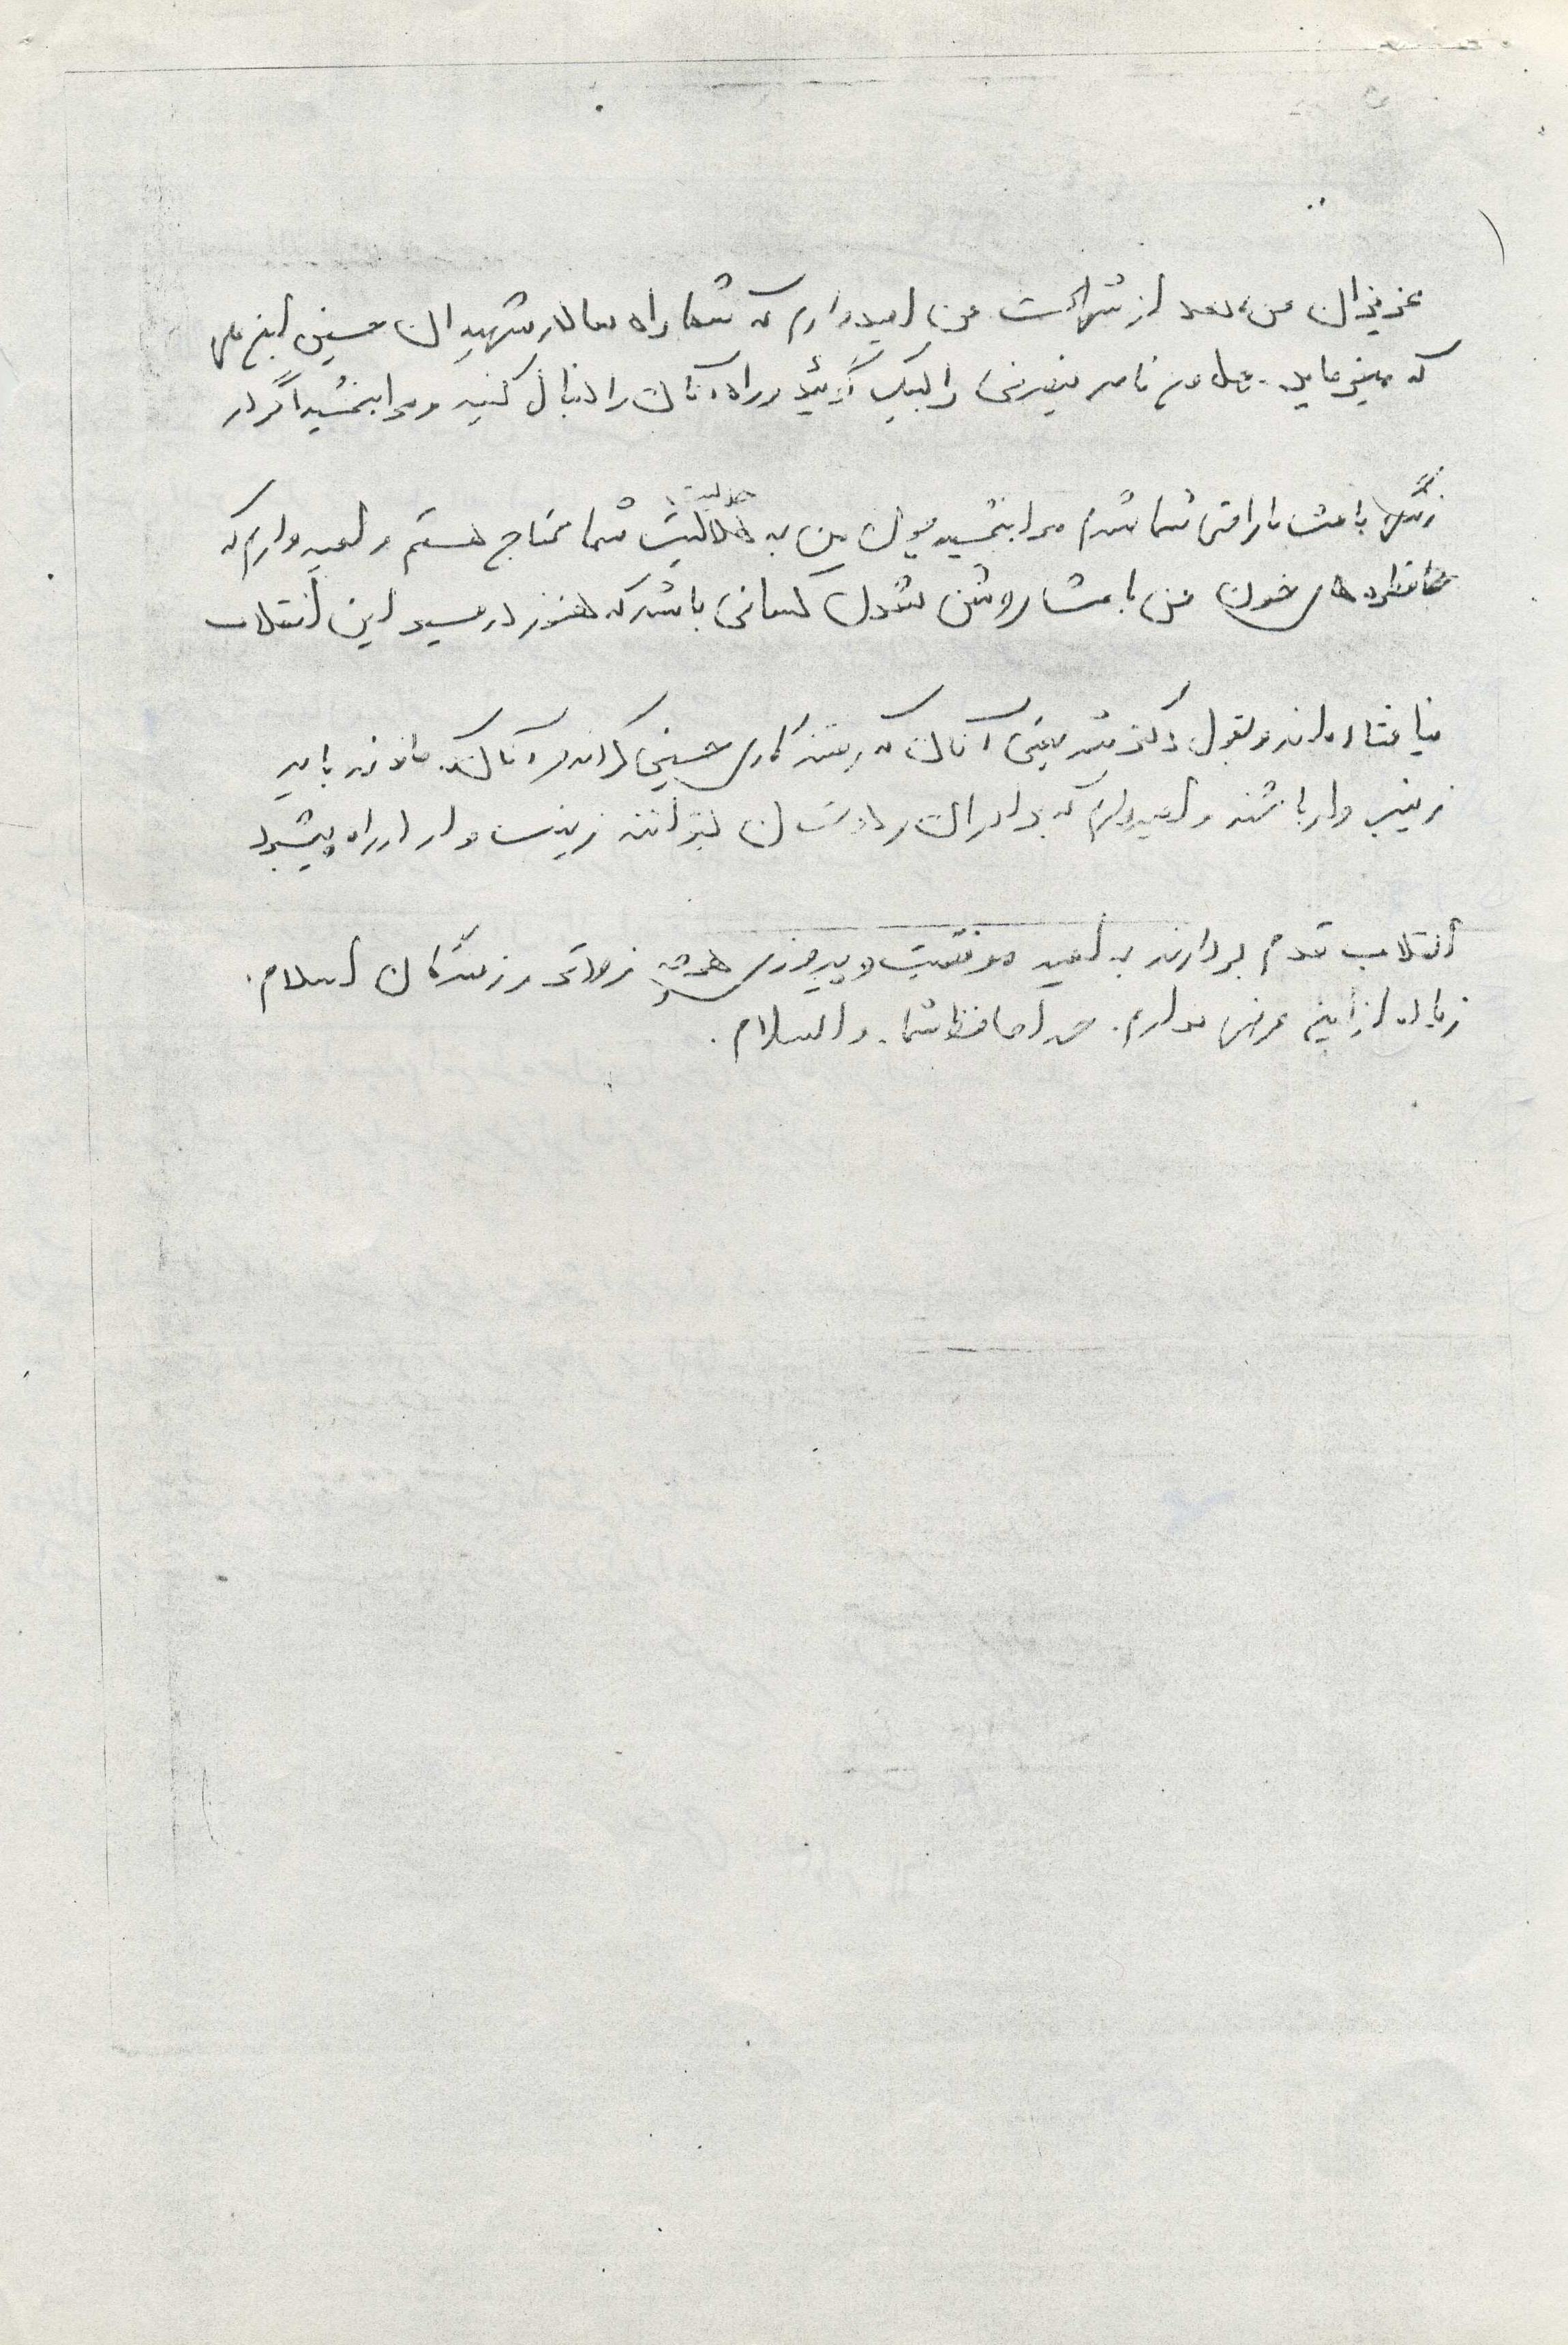 عزیزان من، بعد از شهادت من امیدوارم که شما راه سالار شهیدان حسین ابن علی
که میفرماید هل من ناصر ینصرنی را لبیک گوئید و راه آنان را دنبال کنید و مرا ببخشید اگر در
زندگی باعث ناراحتی شما شدم مرا ببخشید چون من به حلالیت شما محتاج هستم و امیدوارم که
قطره های خون من باعث روشن شدن کسانی باشد که هنوز در مسیر این انقلاب
نیافتاده اند و بقول دکتر شریعتی آنان که رفتند کاری حسینی کردند و آنان که ماندند باید
زینب وار باشند و امیدوارم که برادران و دوستان بتوانند زینب وار در راه پیشبرد
انقلاب قدم بردارند به امید موفقیت و پیروزی هرچه زودتر رزمندگان اسلام.
زیاده از این عرض ندارم. خدا حافظ شما. والسلام.